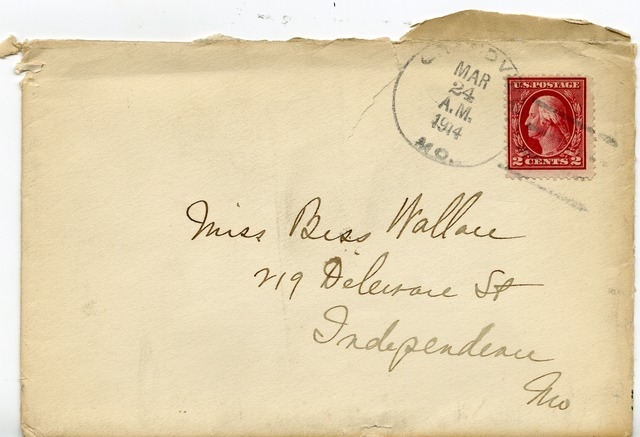 MAR
24
A.M.
1914
MO.
U.S. POSTAGE
2 CENTS 2
Miss Bess Wallace
219 Delaware St
Independence
Mo